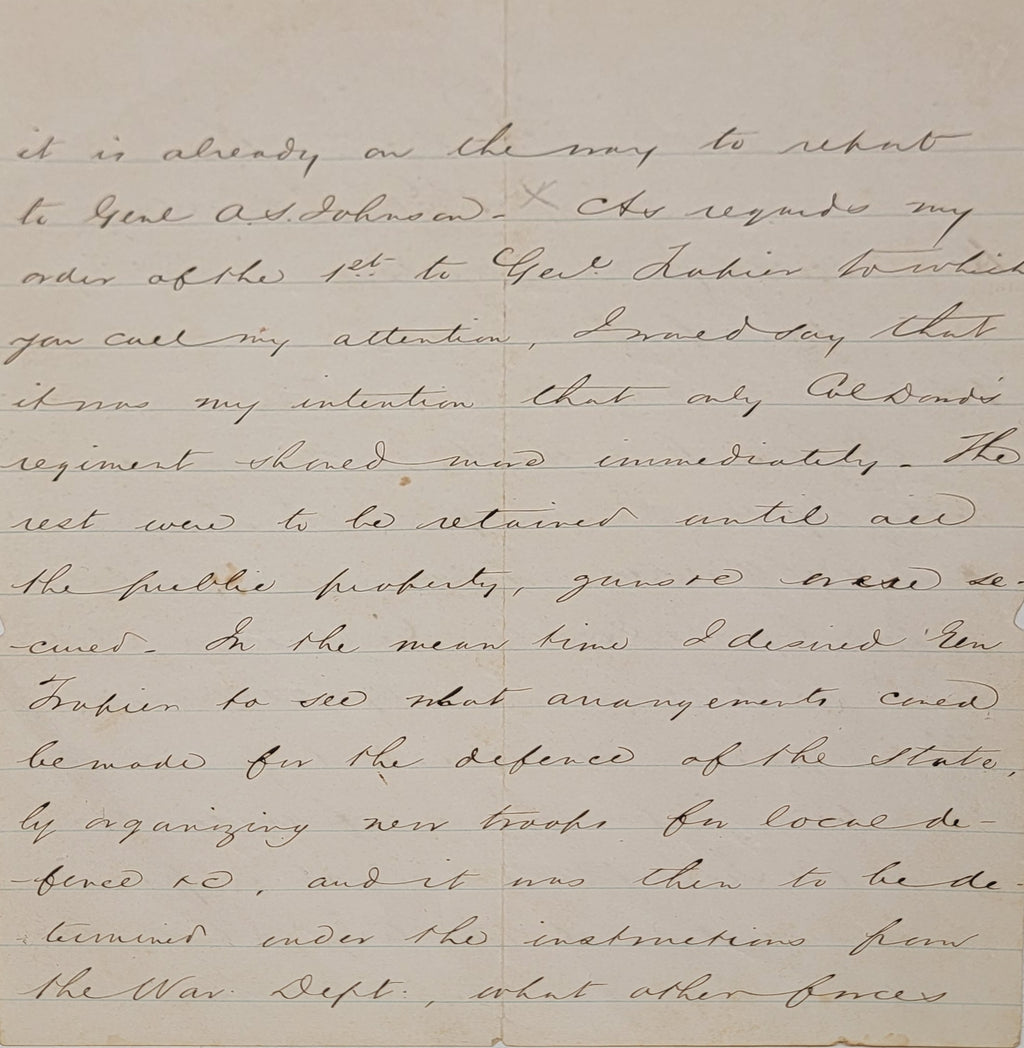 it is already on the way to report
to Genl A.S. Johnson - X As regards my
order of the 1st to Genl. Trapier to which
you call my attention, I would say that
it was my intention that only Col Dowd's
regiment should move immediately. The
rest were to be retained until all
the public property, guns &c were se-
-cured. In the mean time I desired Gen
Trapier to see what arrangements could
be made for the defence of the State,
by organizing new troops for local de-
-fence &c, and it was then to be de-
-termined under the instructions from
the War. Dept., what other forces